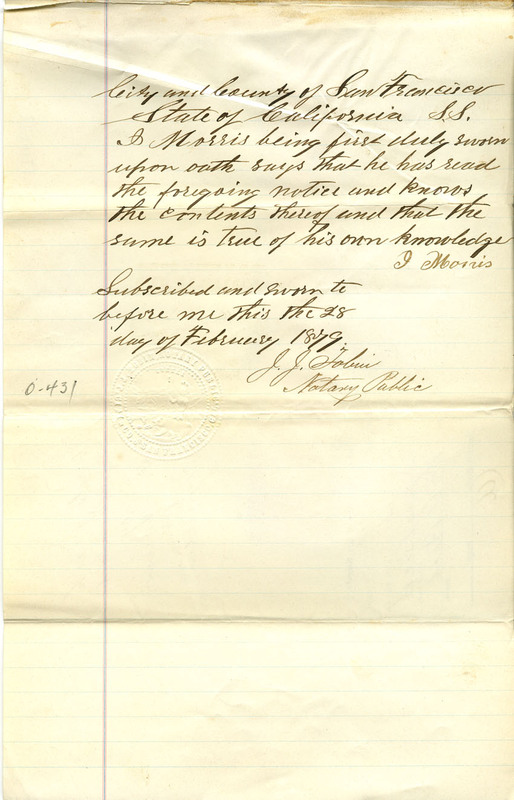 City and County of San Francisco
State of California S.S.
I Morris being first duly sworn
upon oath says that he has read
the foregoing notice and knows
the contents thereof and that the
same is true of his own knowledge
I Morris
Subscribed and sworn to
before me this the 28
day of February 1879.
J. J. Tobin
Notary Public
0-431